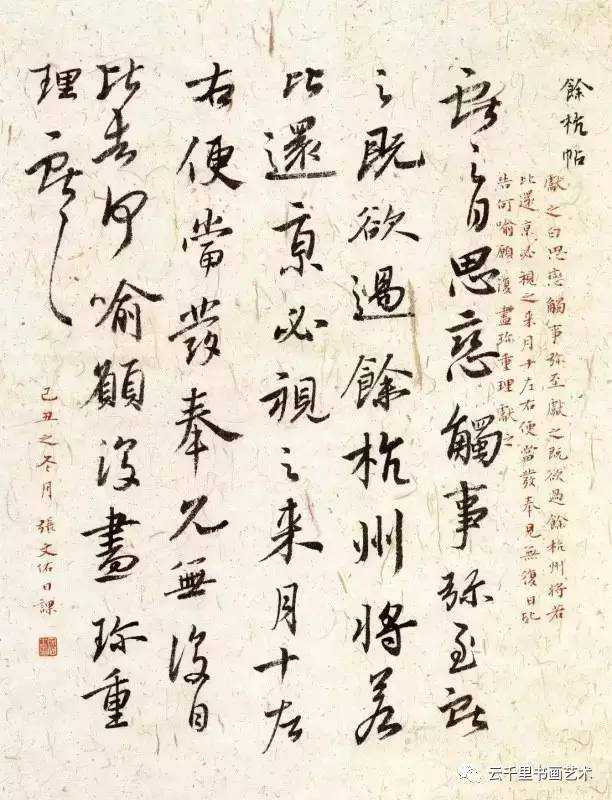 餘杭帖
獻之白思戀觸事弥至獻之既欲過餘杭州將若
比還京必視之来月十左右便當發奉見無復日比
告何喻願復盡珍重理獻之
獻之白思戀觸事弥至獻
之既欲過餘杭州將若
比還京必視之来月十左
右便當發奉見無復日
比告何喻願復盡珍重
理獻之
己丑之冬月張文佑日課
云千里书画艺术